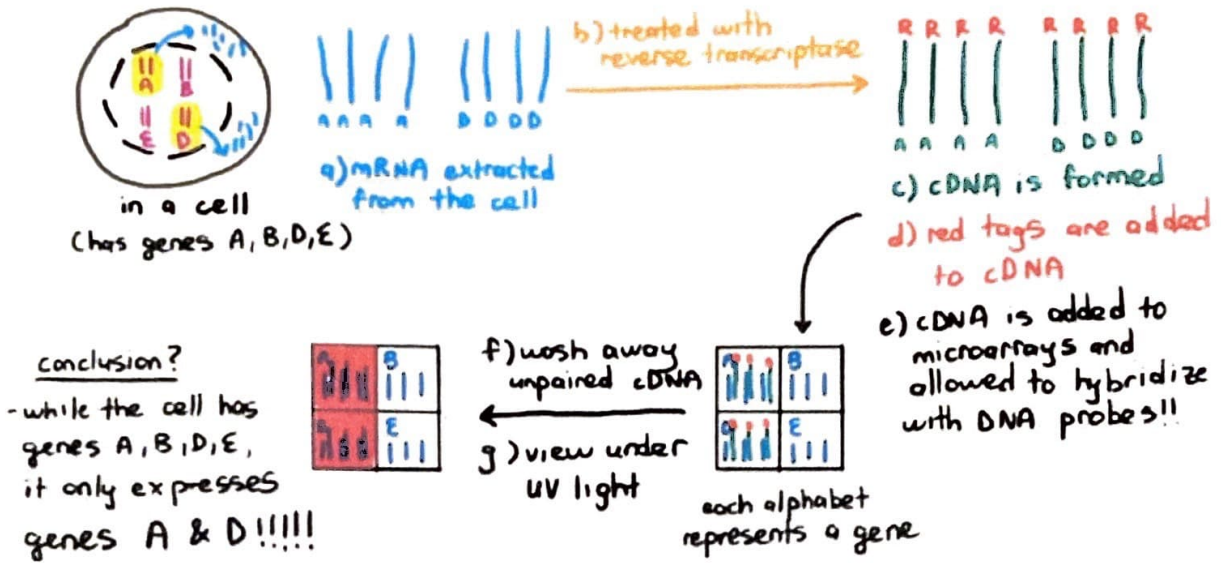 A
B
E
D
in a cell
(has genes A, B, D, E)
A A A A D D D D
a) mRNA extracted
from the cell
b) treated with
reverse transcriptase
R R R R R R R R
A A A A D D D D
c) cDNA is formed
d) red tags are added
to cDNA
e) cDNA is added to
microarrays and
allowed to hybridize
with DNA probes!!
A B
D E
each alphabet
represents a gene
f) wash away
unpaired cDNA
g) view under
UV light
A B
D E
conclusion?
- while the cell has
genes A, B, D, E,
it only expresses
genes A & D!!!!!